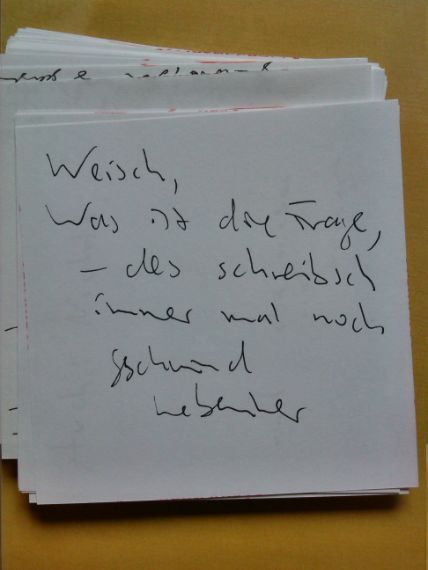 Weisch,
Was ist die Frage,
– des schreibsch
immer mal noch
gschwind
nebenher